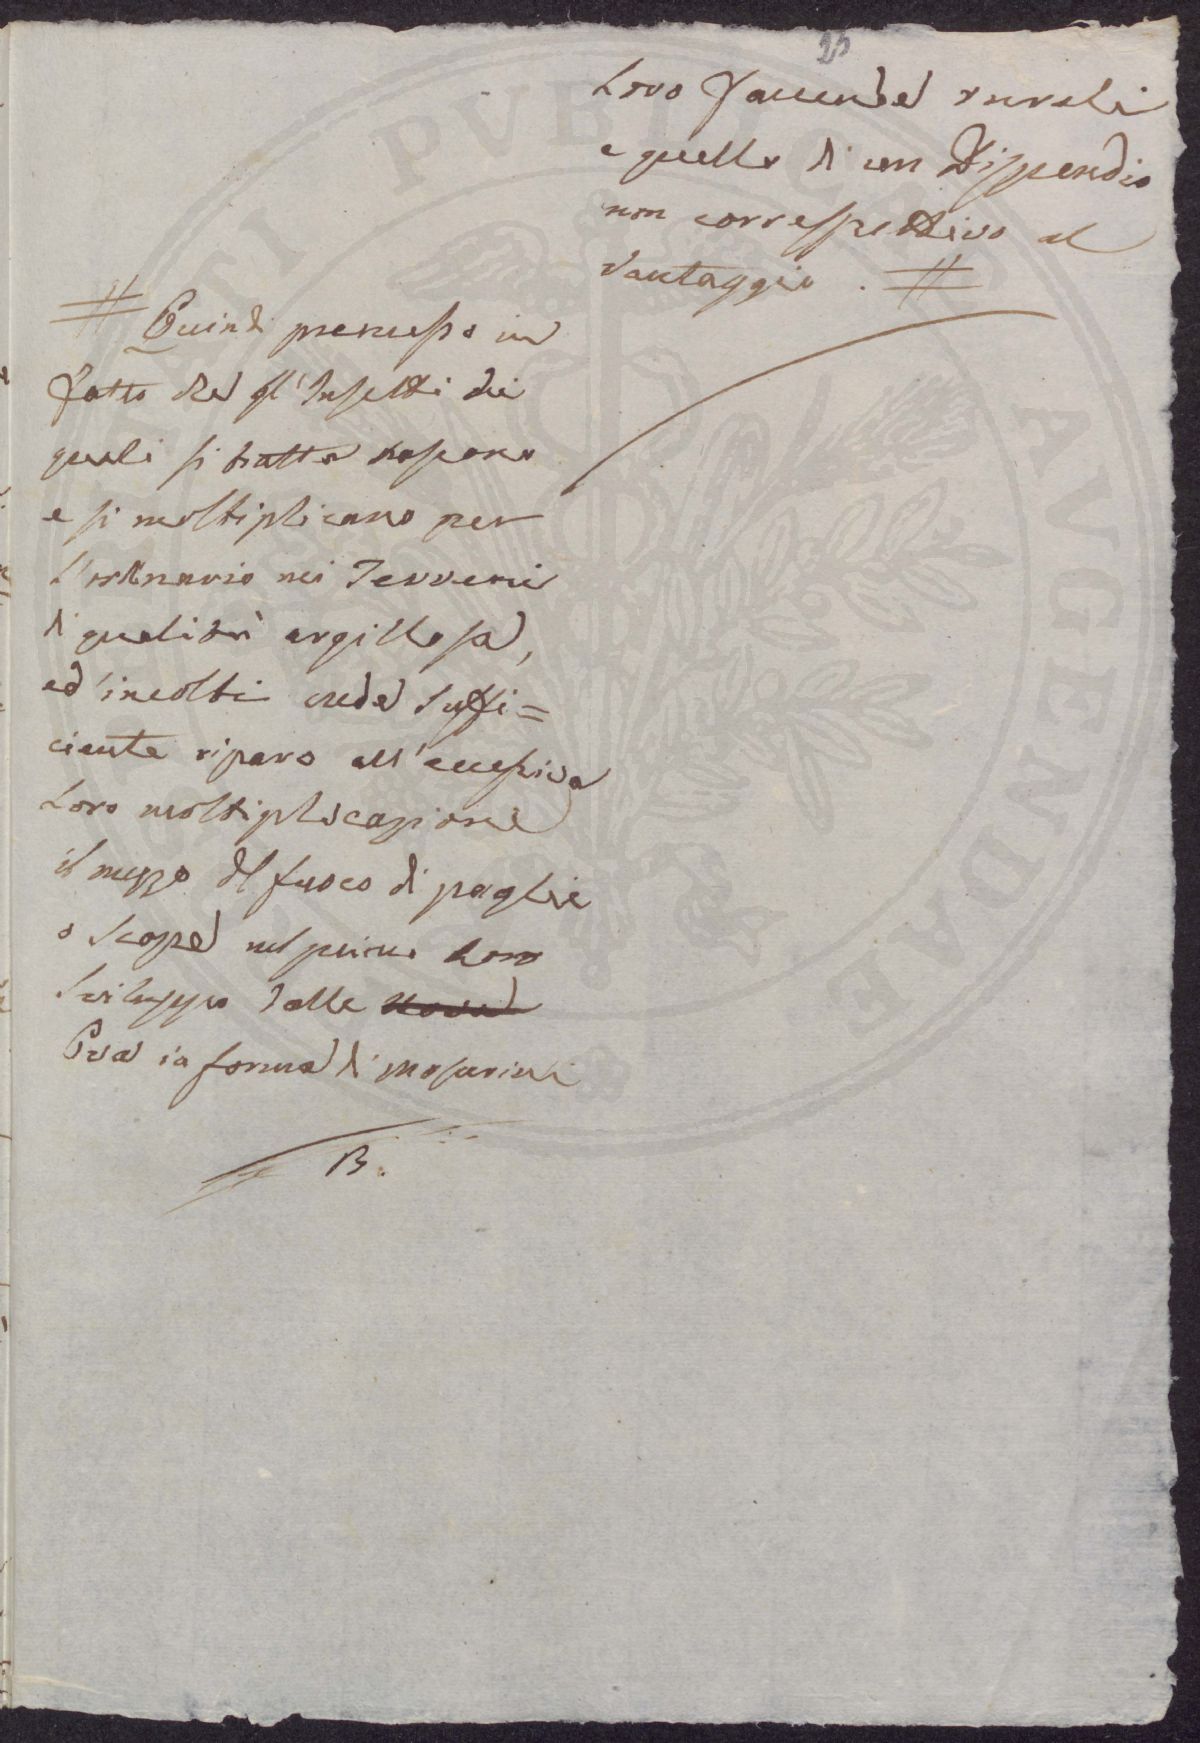 23
Loro Faccende rurali
e quello di un Dispendio
non correspettivo al
vantaggio . #
# Quindi premesso in
fatto che gl'Insetti dei
quali si tratta nascono
e si moltiplicano per
l'ordinario nei Terreni
di qualità argillosa,
ed'incolti crede suffi=
ciente riparo all'eccessiva
Loro moltiplicazione
il mezzo del fuoco di paglie
o scope nel primo Loro
sviluppo dalle
Ova in forma di moscerini
B.
PVBLICAE
AVGENDAE